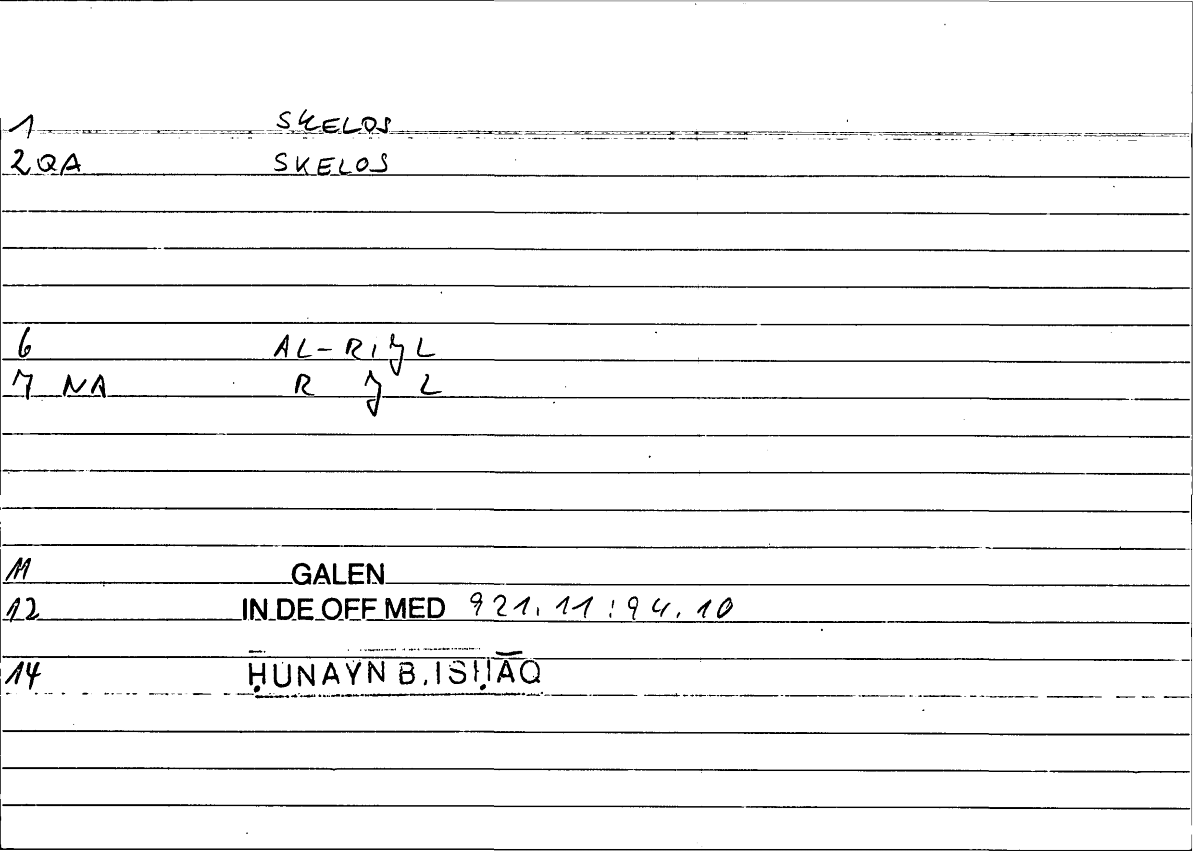 1 SKELOS
2 QA SKELOS
6 AL-RIJL
7 NA R J L
11 GALEN
12 IN DE OFF MED 921.11:94.10
14 ḤUNAYN B. ISḤĀQ